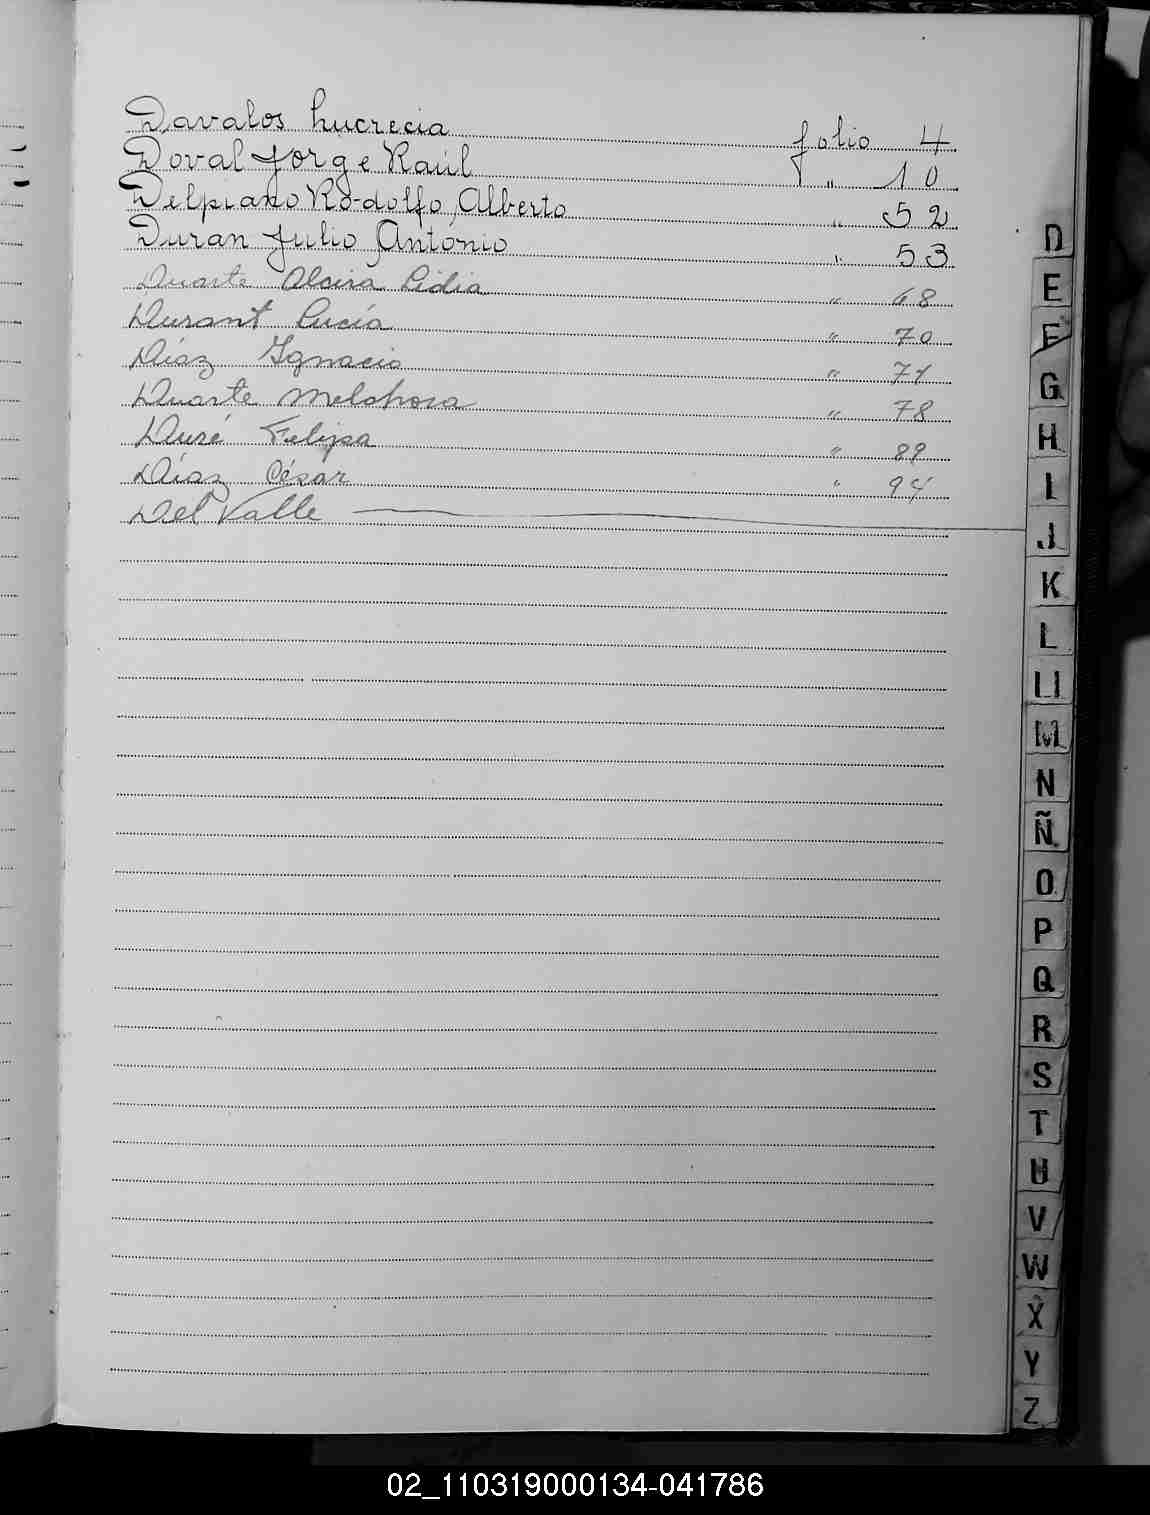 Davalos Lucrecia folio 4
Doval Jorge Raúl " 10
Delpiano Rodolfo Alberto " 52
Duran Julio Antonio " 53
Duarte Alcira Lidia " 68
Durant Lucía " 70
Díaz Ignacio " 77
Duarte Melchora " 78
Duré Felipa "
Díaz César " 94
Del Valle
D
E
F
G
H
I
J
K
L
Ll
M
N
Ñ
O
P
Q
R
S
T
U
V
W
X
Y
Z
02_110319000134-041786